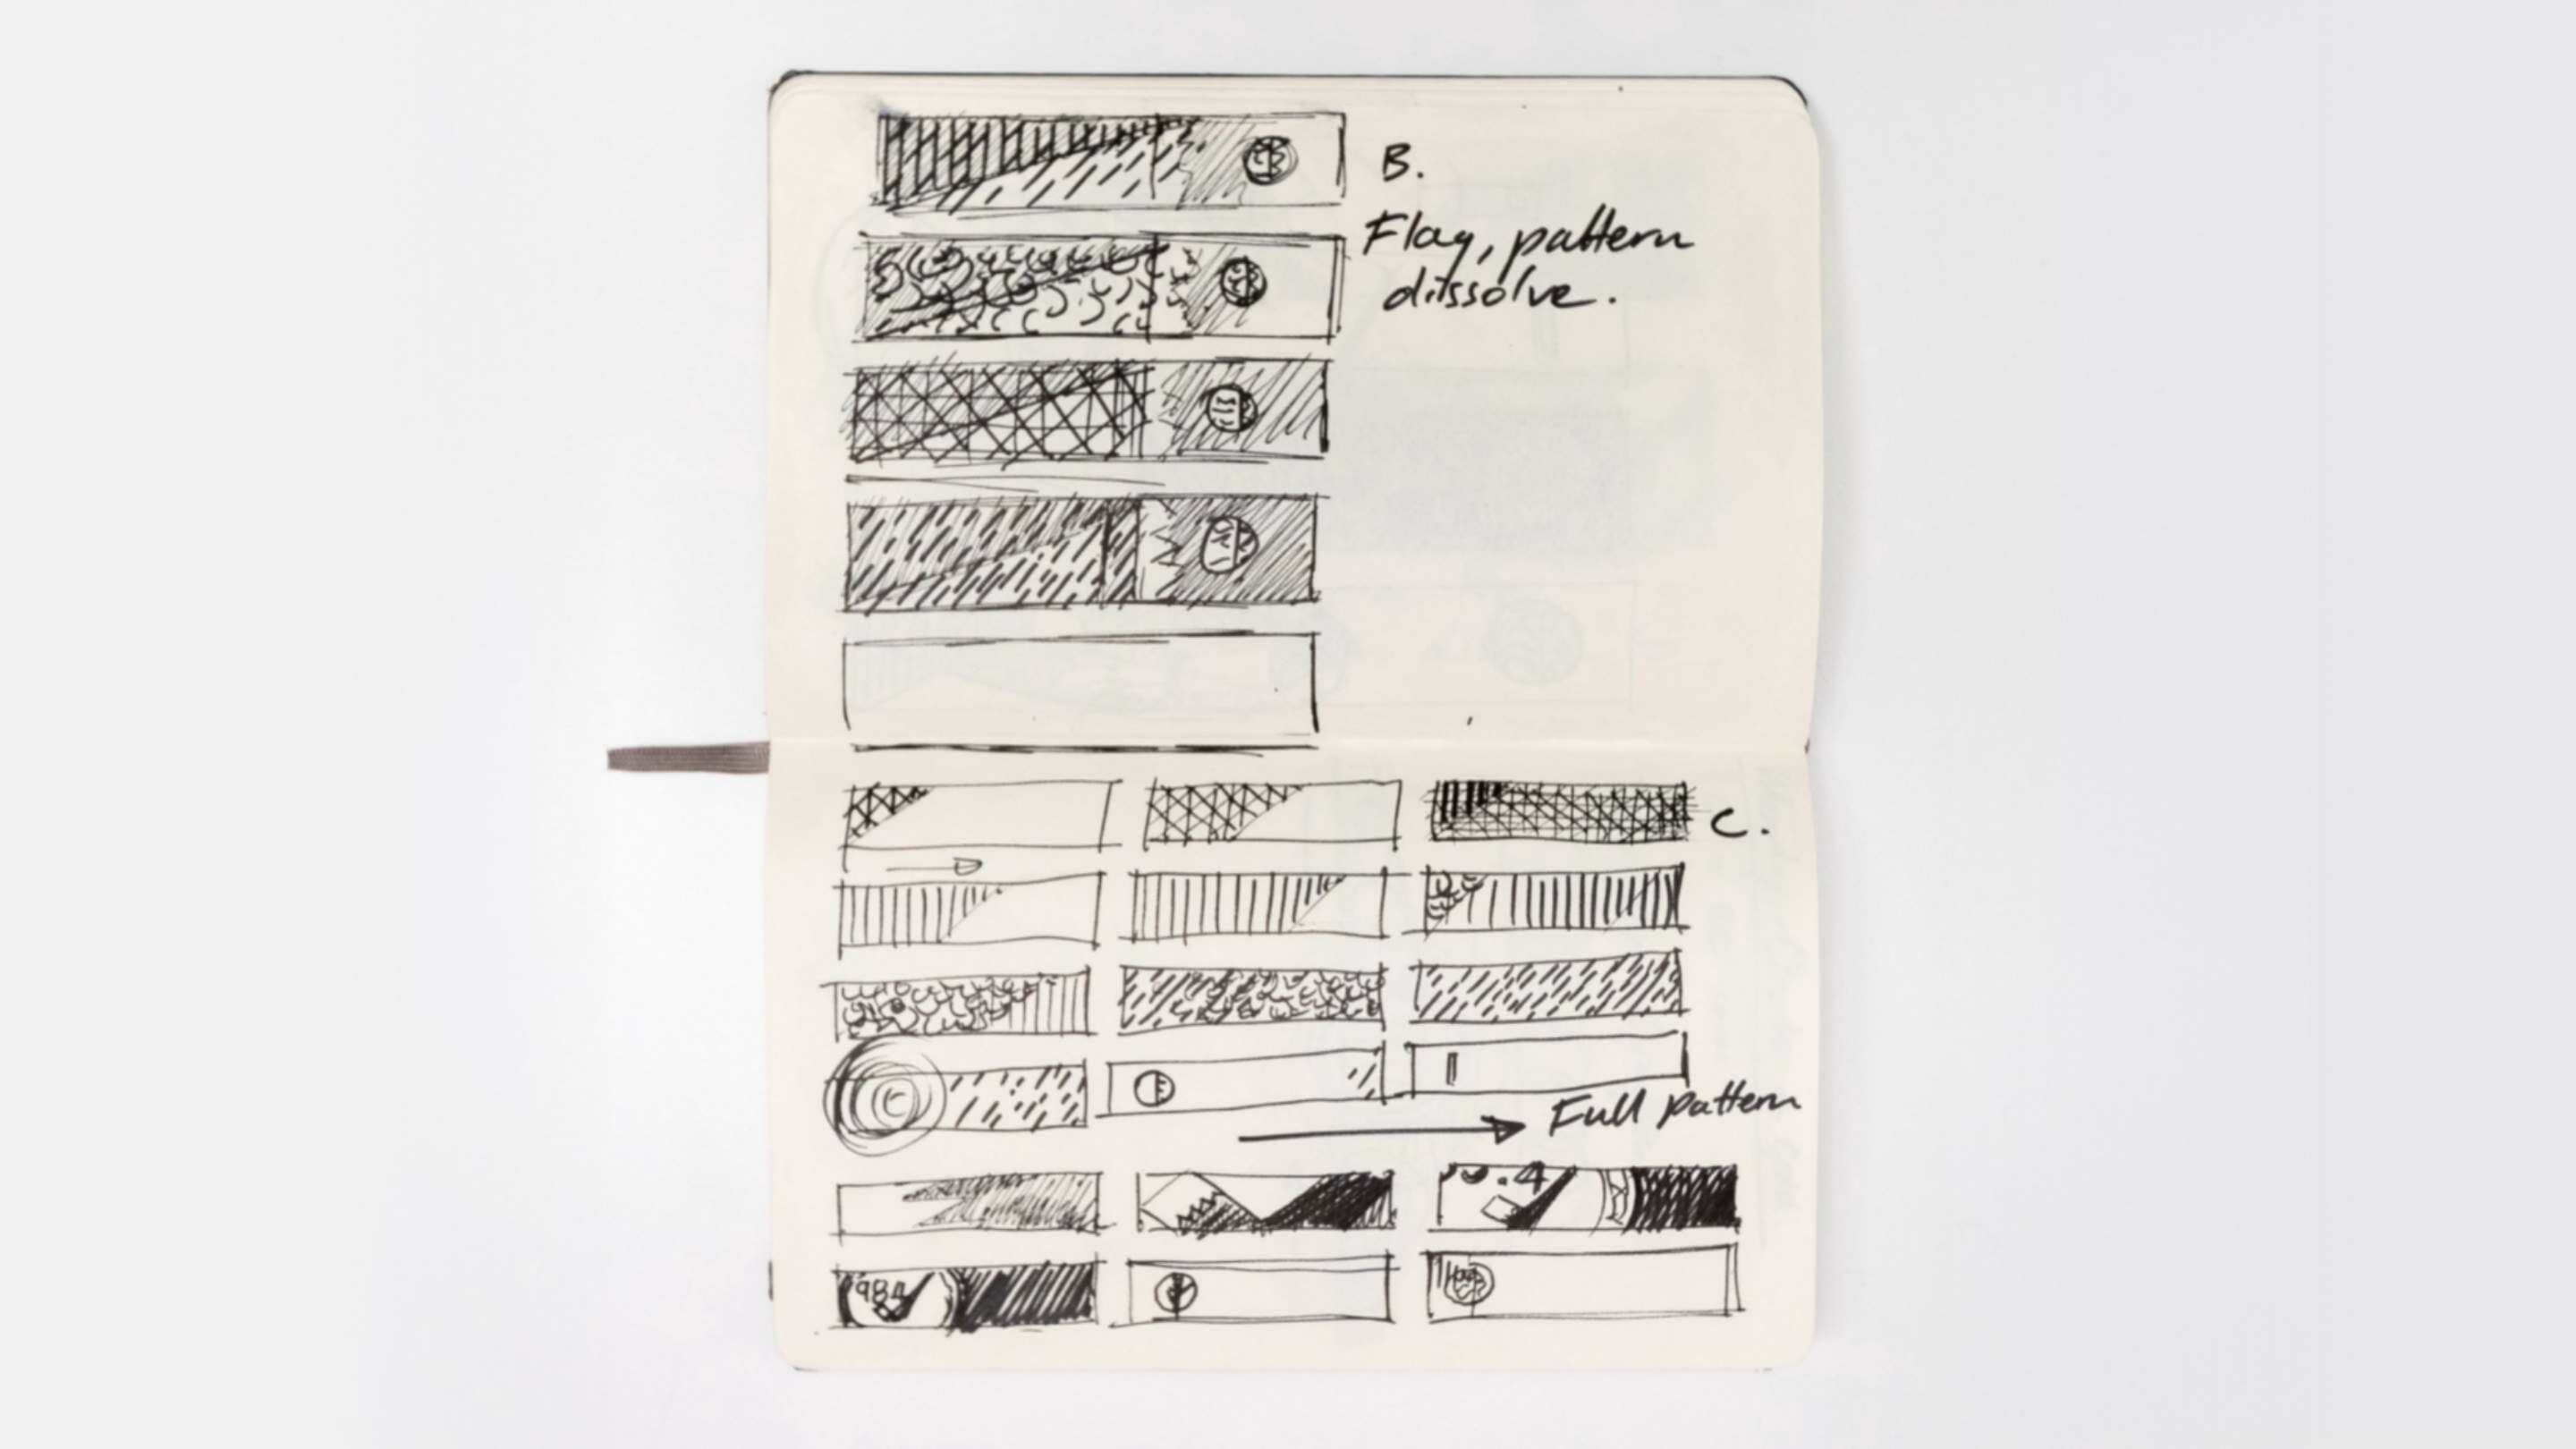 B.
Flag, pattern
dissolve.
C.
Full pattern